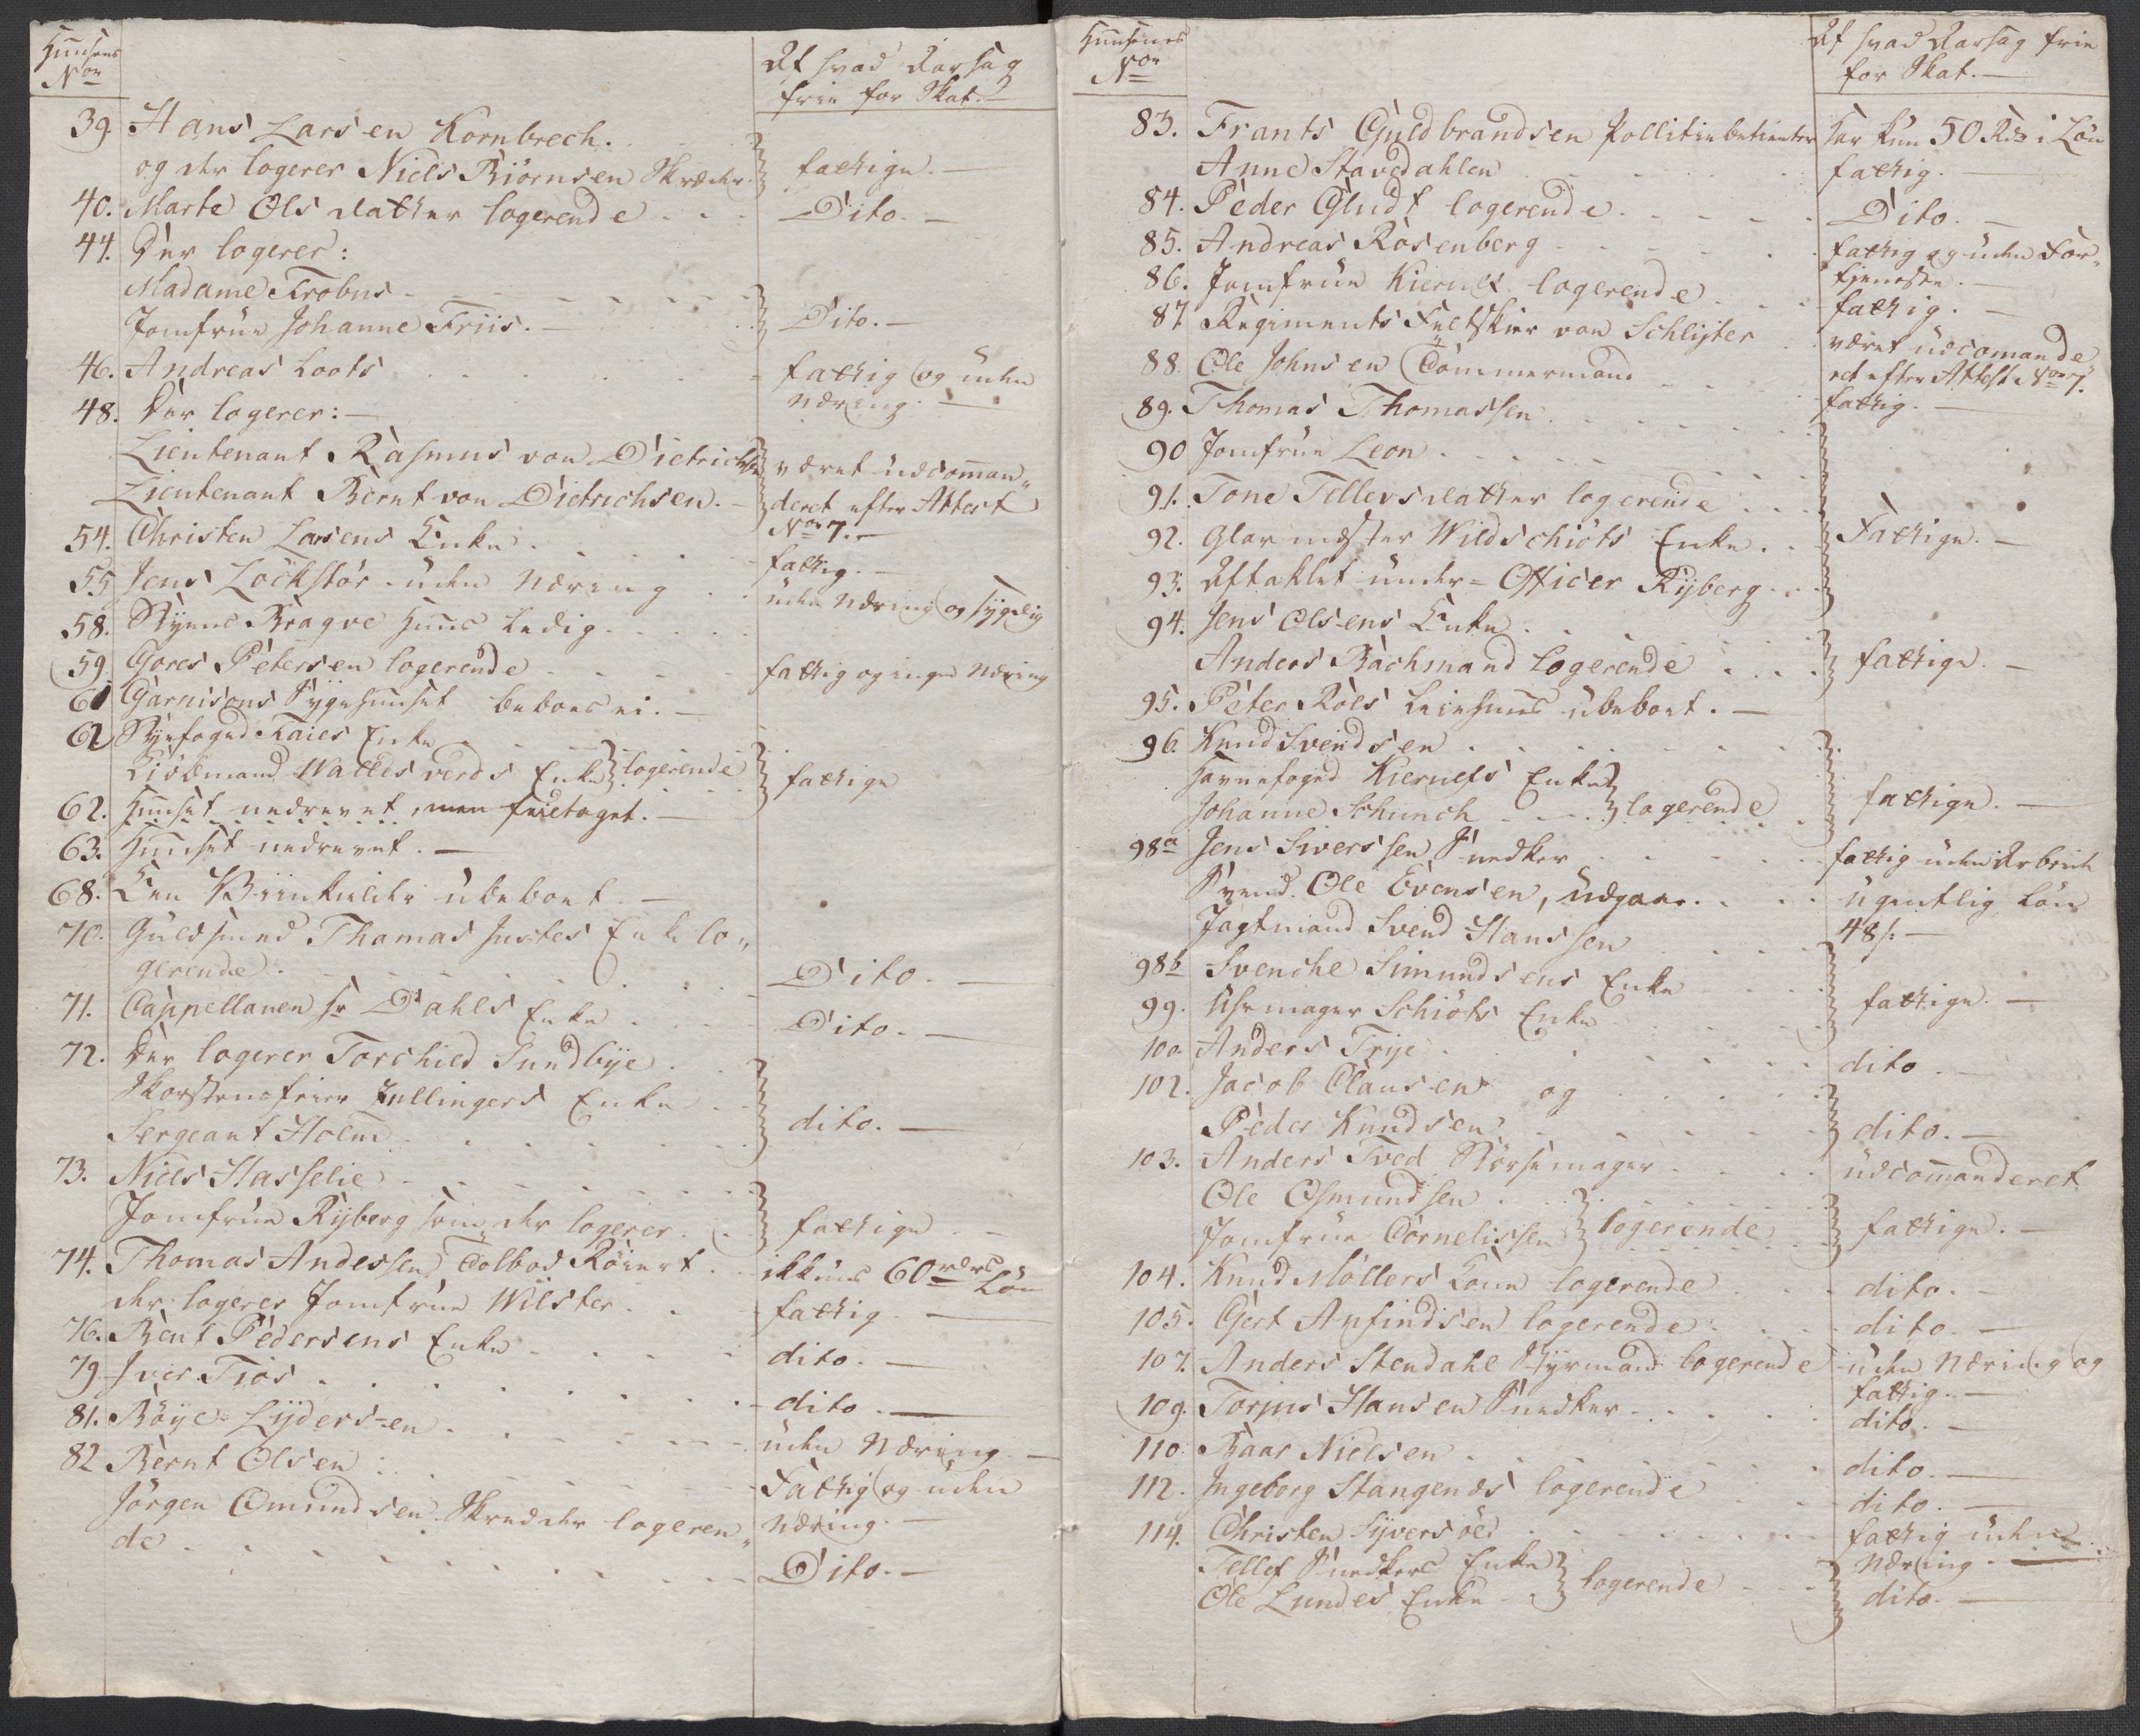 Huusens
Nor
Af hvad Aarsag
frie for Skat.
39. Hans Larsen Kornbrech.
og der logerer Niels Biørnsen Skræder.
fattige.
40. Marte Ols datter logerende
Dito.
44. Der logerer:
Madame Frobus
Jomfrue Johanne Friis.
Dito.
46. Andreas Loots
fattig og uden
Næring.
48. Der logerer:
Lieutenant Rasmus von Dietrichsen
været udcoman„
Lieutenant Bernt von Dietrichsen.
deret efter Attest
Nor 7.
54. Christen Larsens Enke
fattig.
55 Jens Lockstør uden Næring
uden Næring og sygelig
58. Byens Bragve Huus ledig
59. Gores Petersen logerende
fattig og ingen Næring
61 Garnisons Sygehuuset beboes ei.
62 Byefoged Kaies Enke
Kiøbmand Walles verds Enke logerende
fattige
62. Huuset nedrevet, men fritaget.
63. Huuset nedrevet.
68. Een ubeboet.
70. Guldsmed Thomas Justes Enke lo„
gerende.
Dito.
71. Cappellanen Hr Dahls Enke
Dito.
72. Der logerer Torchild Sundbye
Skorsteensfeier Zellingers Enke
Sergeant Holm
dito.
73. Niels Hasselie
Jomfrue Ryberg som der logerer
fattige
74. Thomas Andersen Tolbod Roiert
ikkuns 60 rdrs
Løn
der logerer Jomfrue Wilster
fattig
76. Bent Pedersens Enke
dito.
79 Iver Tiøs
dito.
81. Bøye Lydersen
uden Næring
82 Bernt Olsen
Fattig og uden
Næring.
Jørgen Omundsen Skredder logeren„
de
Dito.
Huusenes
Nor
Af hvad Aarsag frie
for Skat.
83. Frants Guldbrandsen Pollitiebetienter
har kun 50 Rdr i Løn
Anne Stavedahlen
fattig.
84. Peder Gludt logerende
Dito.
85. Andreas Rosenberg
fattig og uden For„
tjeneste.
86. Jomfrue Kierulf logerende
fattig.
87. Regiments Feltskier von Schlyter
været udcomande
ret efter Attest Nor 7.
88. Ole Johnsen Tømmermand
fattig.
89. Thomas Thomassen
90 Jomfrue Leon
91. Tone Tellevsdatter logerende
92. Glarmester Wildschiøts Enke.
Fattige.
93. Aftaklet under-Officer Ryberg
94. Jens Olsens Enke
Anders Bachmand logerende
fattige.
95. Peter Roes Leiehuus ubeboet.
96. Knud Svendsen
Havnefoged Kierulfs Enke
Johanne Schunch logerende
fattige.
98a Jens Siverssen Snedker
fattig uden Arbeide
Svend Ole Evensen, udgaar.
ugentlig Løn
48 s.
Jagtmand Svend Hanssen
98b Svenche Simundsens Enke
99. Uhrmager Schiøts Enke
fattige.
100 Anders Trye
dito
102. Jacob Clausen og
Peder Knudsen
dito.
103. Anders Tved Børsemager
udcommanderet
Ole Osmundsen
Jomfrue Cornelissen logerende
fattige.
104. Knud Møllers Kone logerende
dito.
105. Gert Anfindsen logerende
dito.
107. Anders Stendahl Styrmand logerende
uden Næring og
fattig.
109. Torjus Hansen Snedker
dito.
110. Baar Nielsen
dito.
112. Ingeborg Stangends logerende
dito.
114. Christen Syversøe
fattig uden
Næring.
Tellef Snedkers Enke
Ole Lundes Enke logerende
dito.